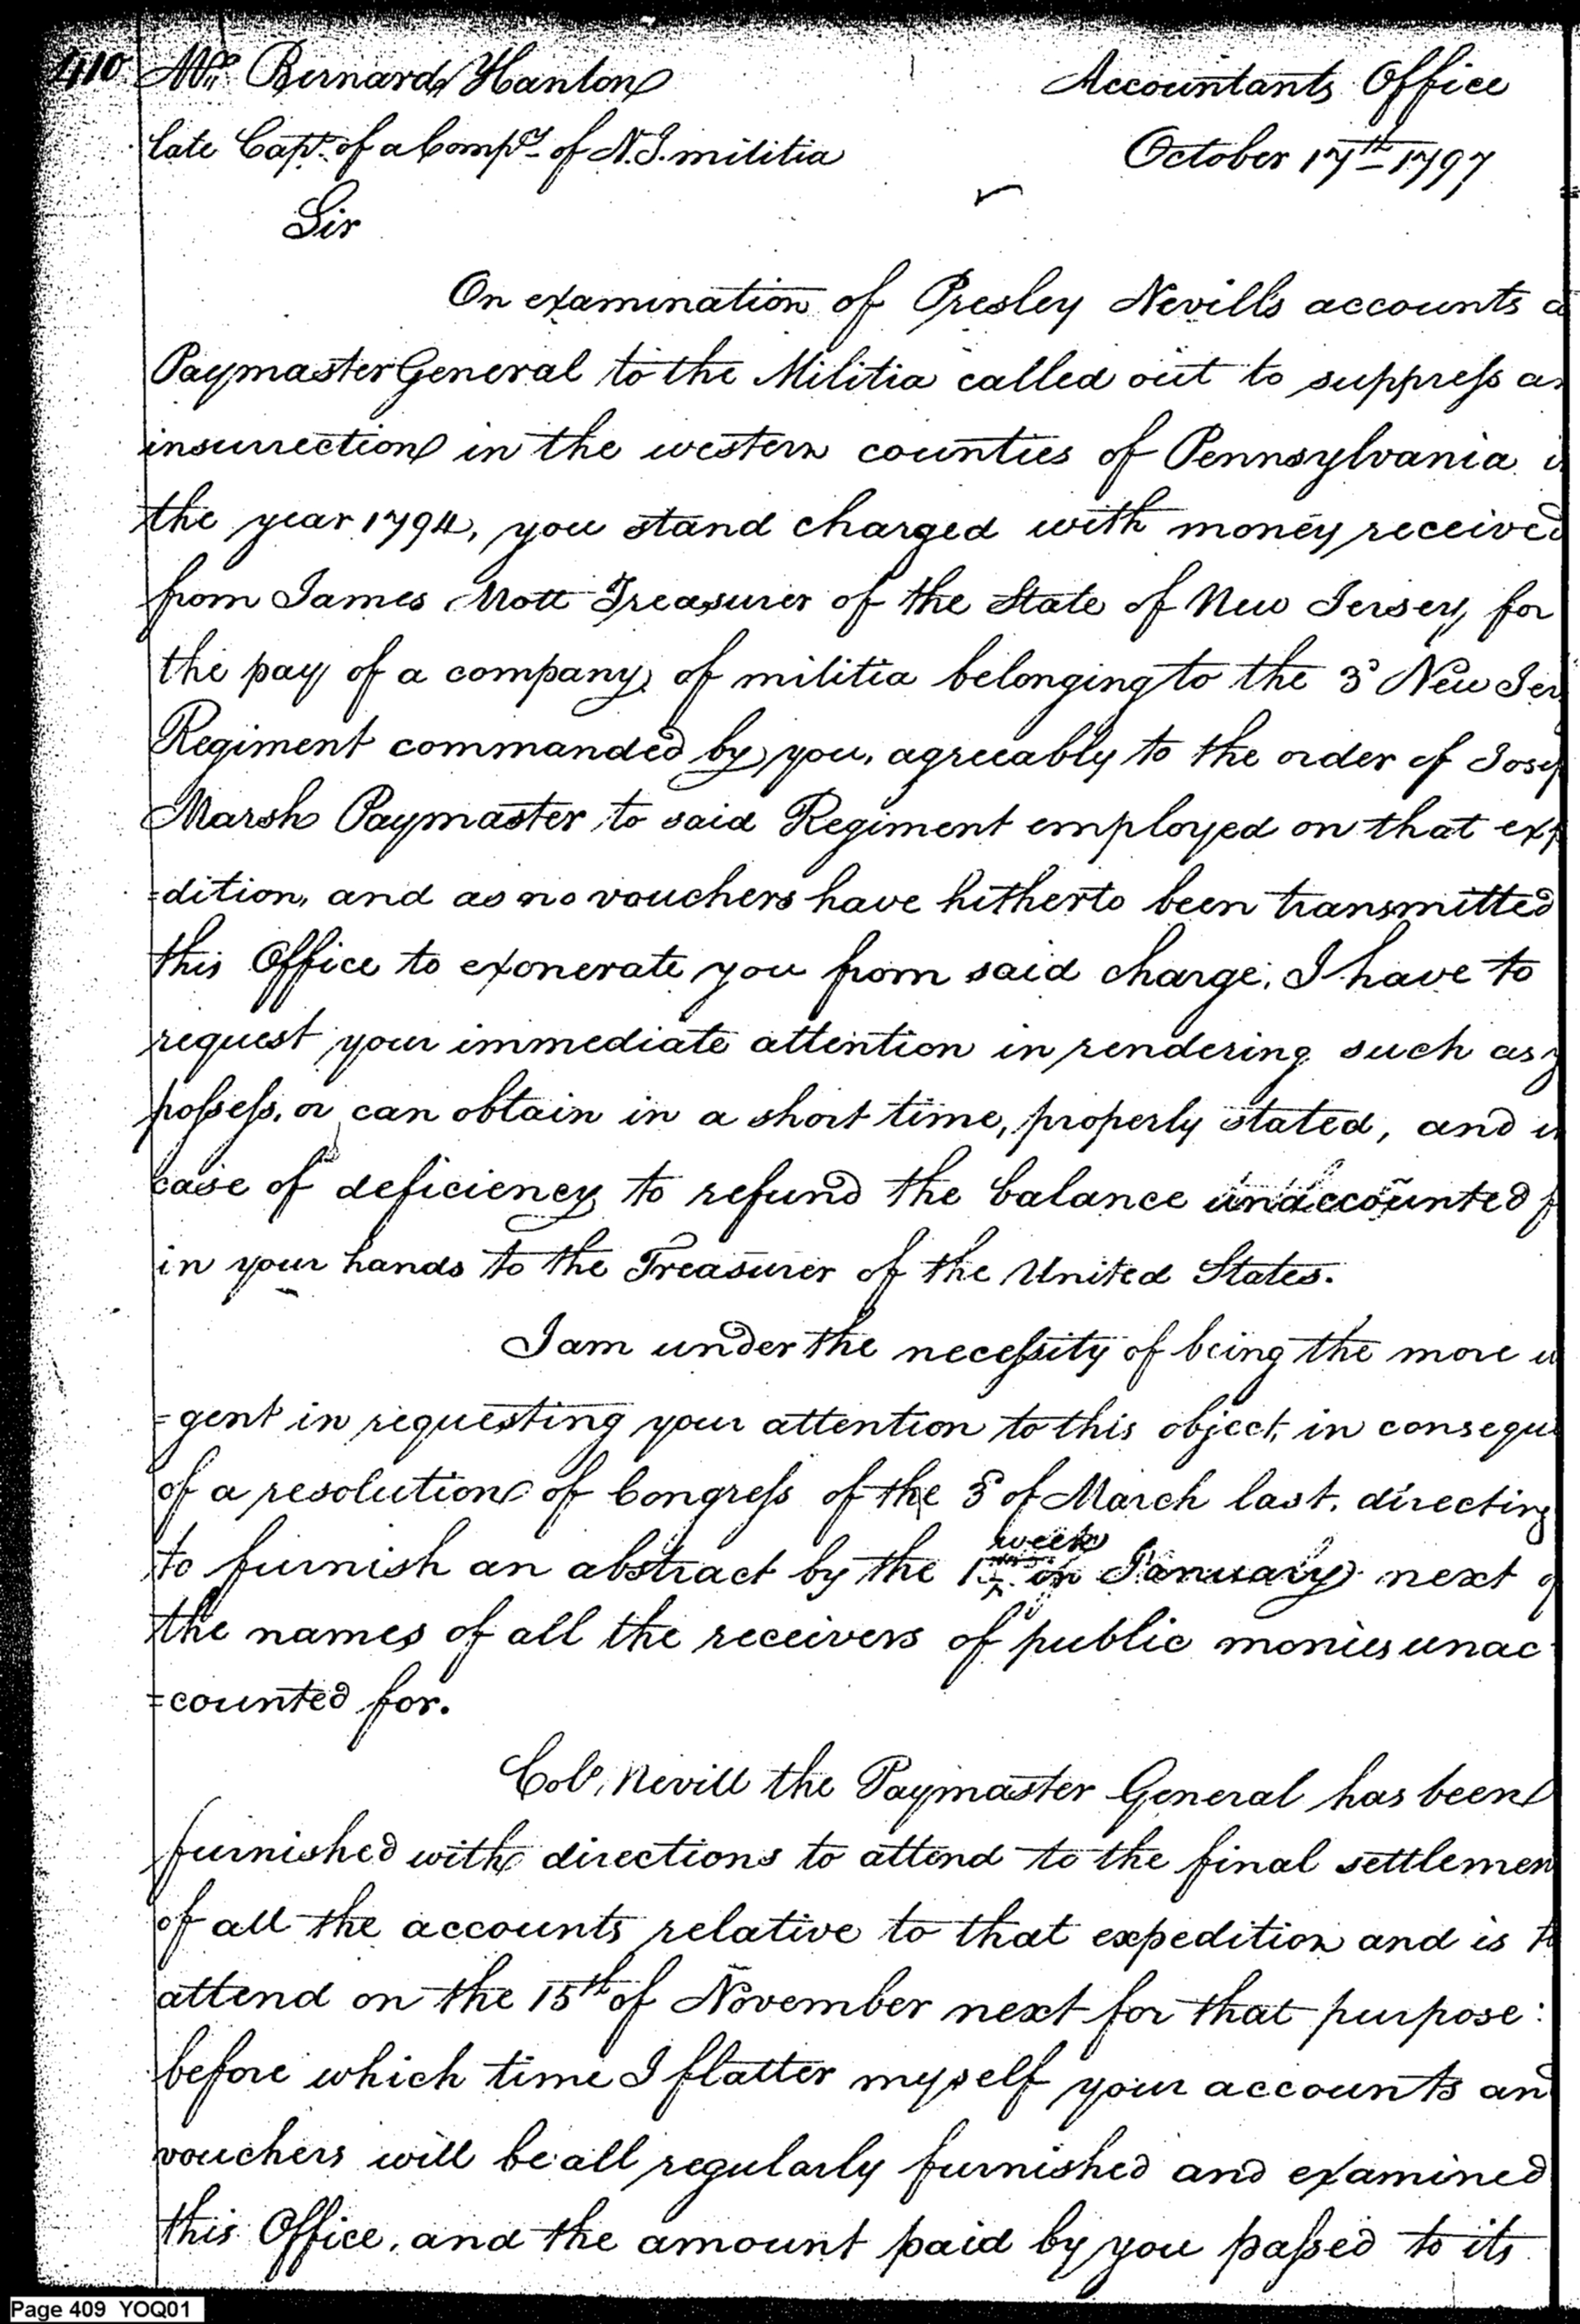 410 Mr. Bernard Hanlon Accountants Office
late Capt. of a Compy. of N.J. militia October 17th 1797
Sir
On examination of Presley Nevills accounts a
Paymaster General to the Militia called out to suppress an
insurrection in the western counties of Pennsylvania i
the year 1794, you stand charged with money received
from James Mott Treasurer of the State of New Jersey, for
the pay of a company of militia belonging to the 3d New Jer
Regiment commanded by you, agreeably to the order of Josep
Marsh Paymaster to said Regiment employed on that exp
=dition, and as no vouchers have hitherto been transmitted
this Office to exonerate you from said charge, I have to
request your immediate attention in rendering such as y
possess, or can obtain in a short time, properly stated, and in
case of deficiency to refund the balance unaccounted f
in your hands to the Treasurer of the United States.
I am under the necessity of being the more u
=gent in requesting your attention to this object, in conseque
of a resolution of Congress of the 3d of March last, directing
to furnish an abstract by the 1st week in January next o
the names of all the receivers of public monies unac-
=counted for.
Colo. Nevill the Paymaster General has been
furnished with directions to attend to the final settlemen
of all the accounts relative to that expedition and is to
attend on the 15th of November next for that purpose:
before which time I flatter myself your accounts and
vouchers will be all regularly furnished and examined
this Office, and the amount paid by you passed to its
Page 409 YOQ01